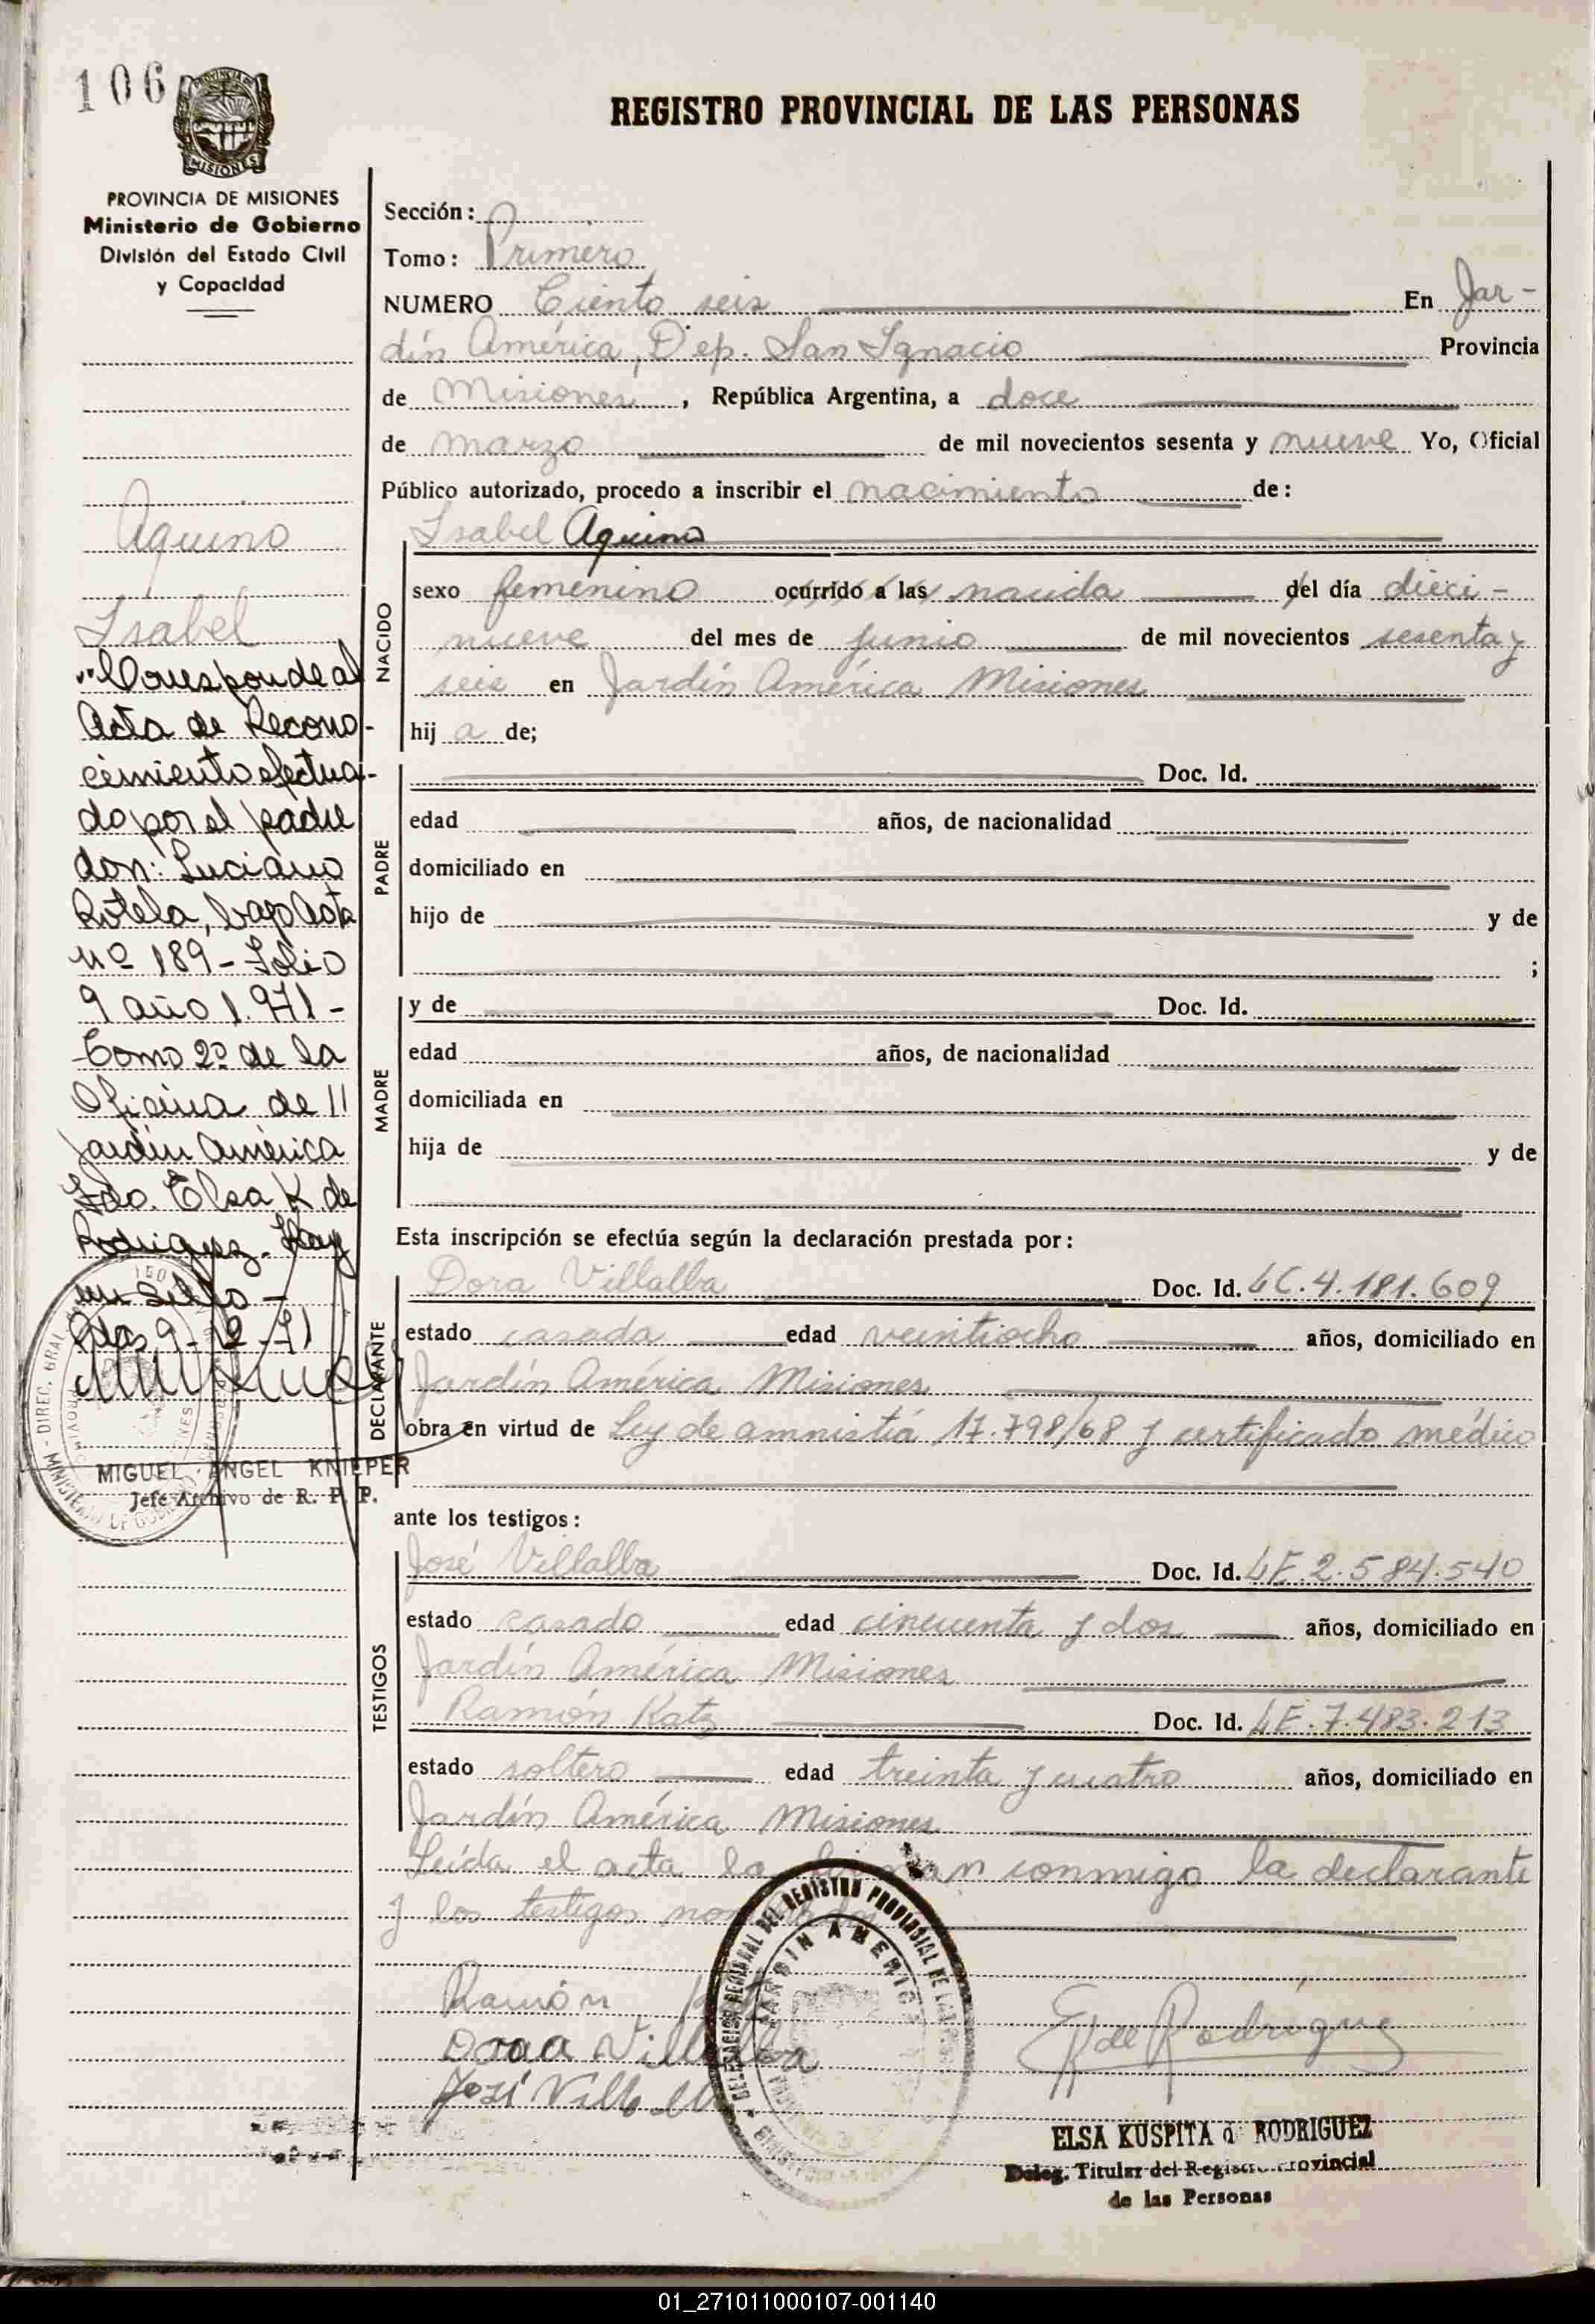 106
PROVINCIA DE
MISIONES
REGISTRO PROVINCIAL DE LAS PERSONAS
PROVINCIA DE MISIONES
Ministerio de Gobierno
División del Estado Civil
y Capacidad
Sección:
Tomo: Primero
NUMERO Ciento seis En Jar-
dín América, Dep. San Ignacio Provincia
de Misiones, República Argentina, a doce
de marzo de mil novecientos sesenta y nueve Yo, Oficial
Público autorizado, procedo a inscribir el nacimiento de:
Isabel Aquino
NACIDO
sexo femenino ocurrido a las nacida del día dieci-
nueve del mes de junio de mil novecientos sesenta y
seis en Jardín América Misiones
hij a de;
PADRE
Doc. Id.
edad años, de nacionalidad
domiciliado en
hijo de y de
;
MADRE
y de Doc. Id.
edad años, de nacionalidad
domiciliada en
hija de y de
Esta inscripción se efectúa según la declaración prestada por:
DECLARANTE
Dora Villalba Doc. Id. LC. 4.181.609
estado casada edad veintiocho años, domiciliado en
Jardín América Misiones
obra en virtud de Ley de amnistía 17.798/68 y certificado médico
ante los testigos:
TESTIGOS
José Villalba Doc. Id. LE. 2.584.540
estado casado edad cincuenta y dos años, domiciliado en
Jardín América Misiones
Ramón Katz Doc. Id. LE. 7.483.213
estado soltero edad treinta y cuatro años, domiciliado en
Jardín América Misiones
Leída el acta la firman conmigo la declarante
y los testigos
Aquino
Isabel
"Corresponde al
Acta de Recono-
cimiento efectua-
do por el padre
don: Luciano
Rotela, bajo Acta
nº 189 - Folio
9 año 1.971 -
Tomo 2º de la
Oficina de
Jardín América
Fdo. Elsa K de
Rodriguez. Hay
un sello -
Pdas, 9-12-71
MIGUEL ANGEL KNIEPER
Jefe Archivo de R. P. P.
Ramón
Dora Villalba
José Villalba
E K de Rodríguez
DELEGACION REGIONAL DEL REGISTRO PROVINCIAL DE LAS
JARDIN AMERICA
ELSA KUSPITA d RODRIGUEZ
Deleg. Titular del Registro Provincial
de las Personas
01_271011000107-001140